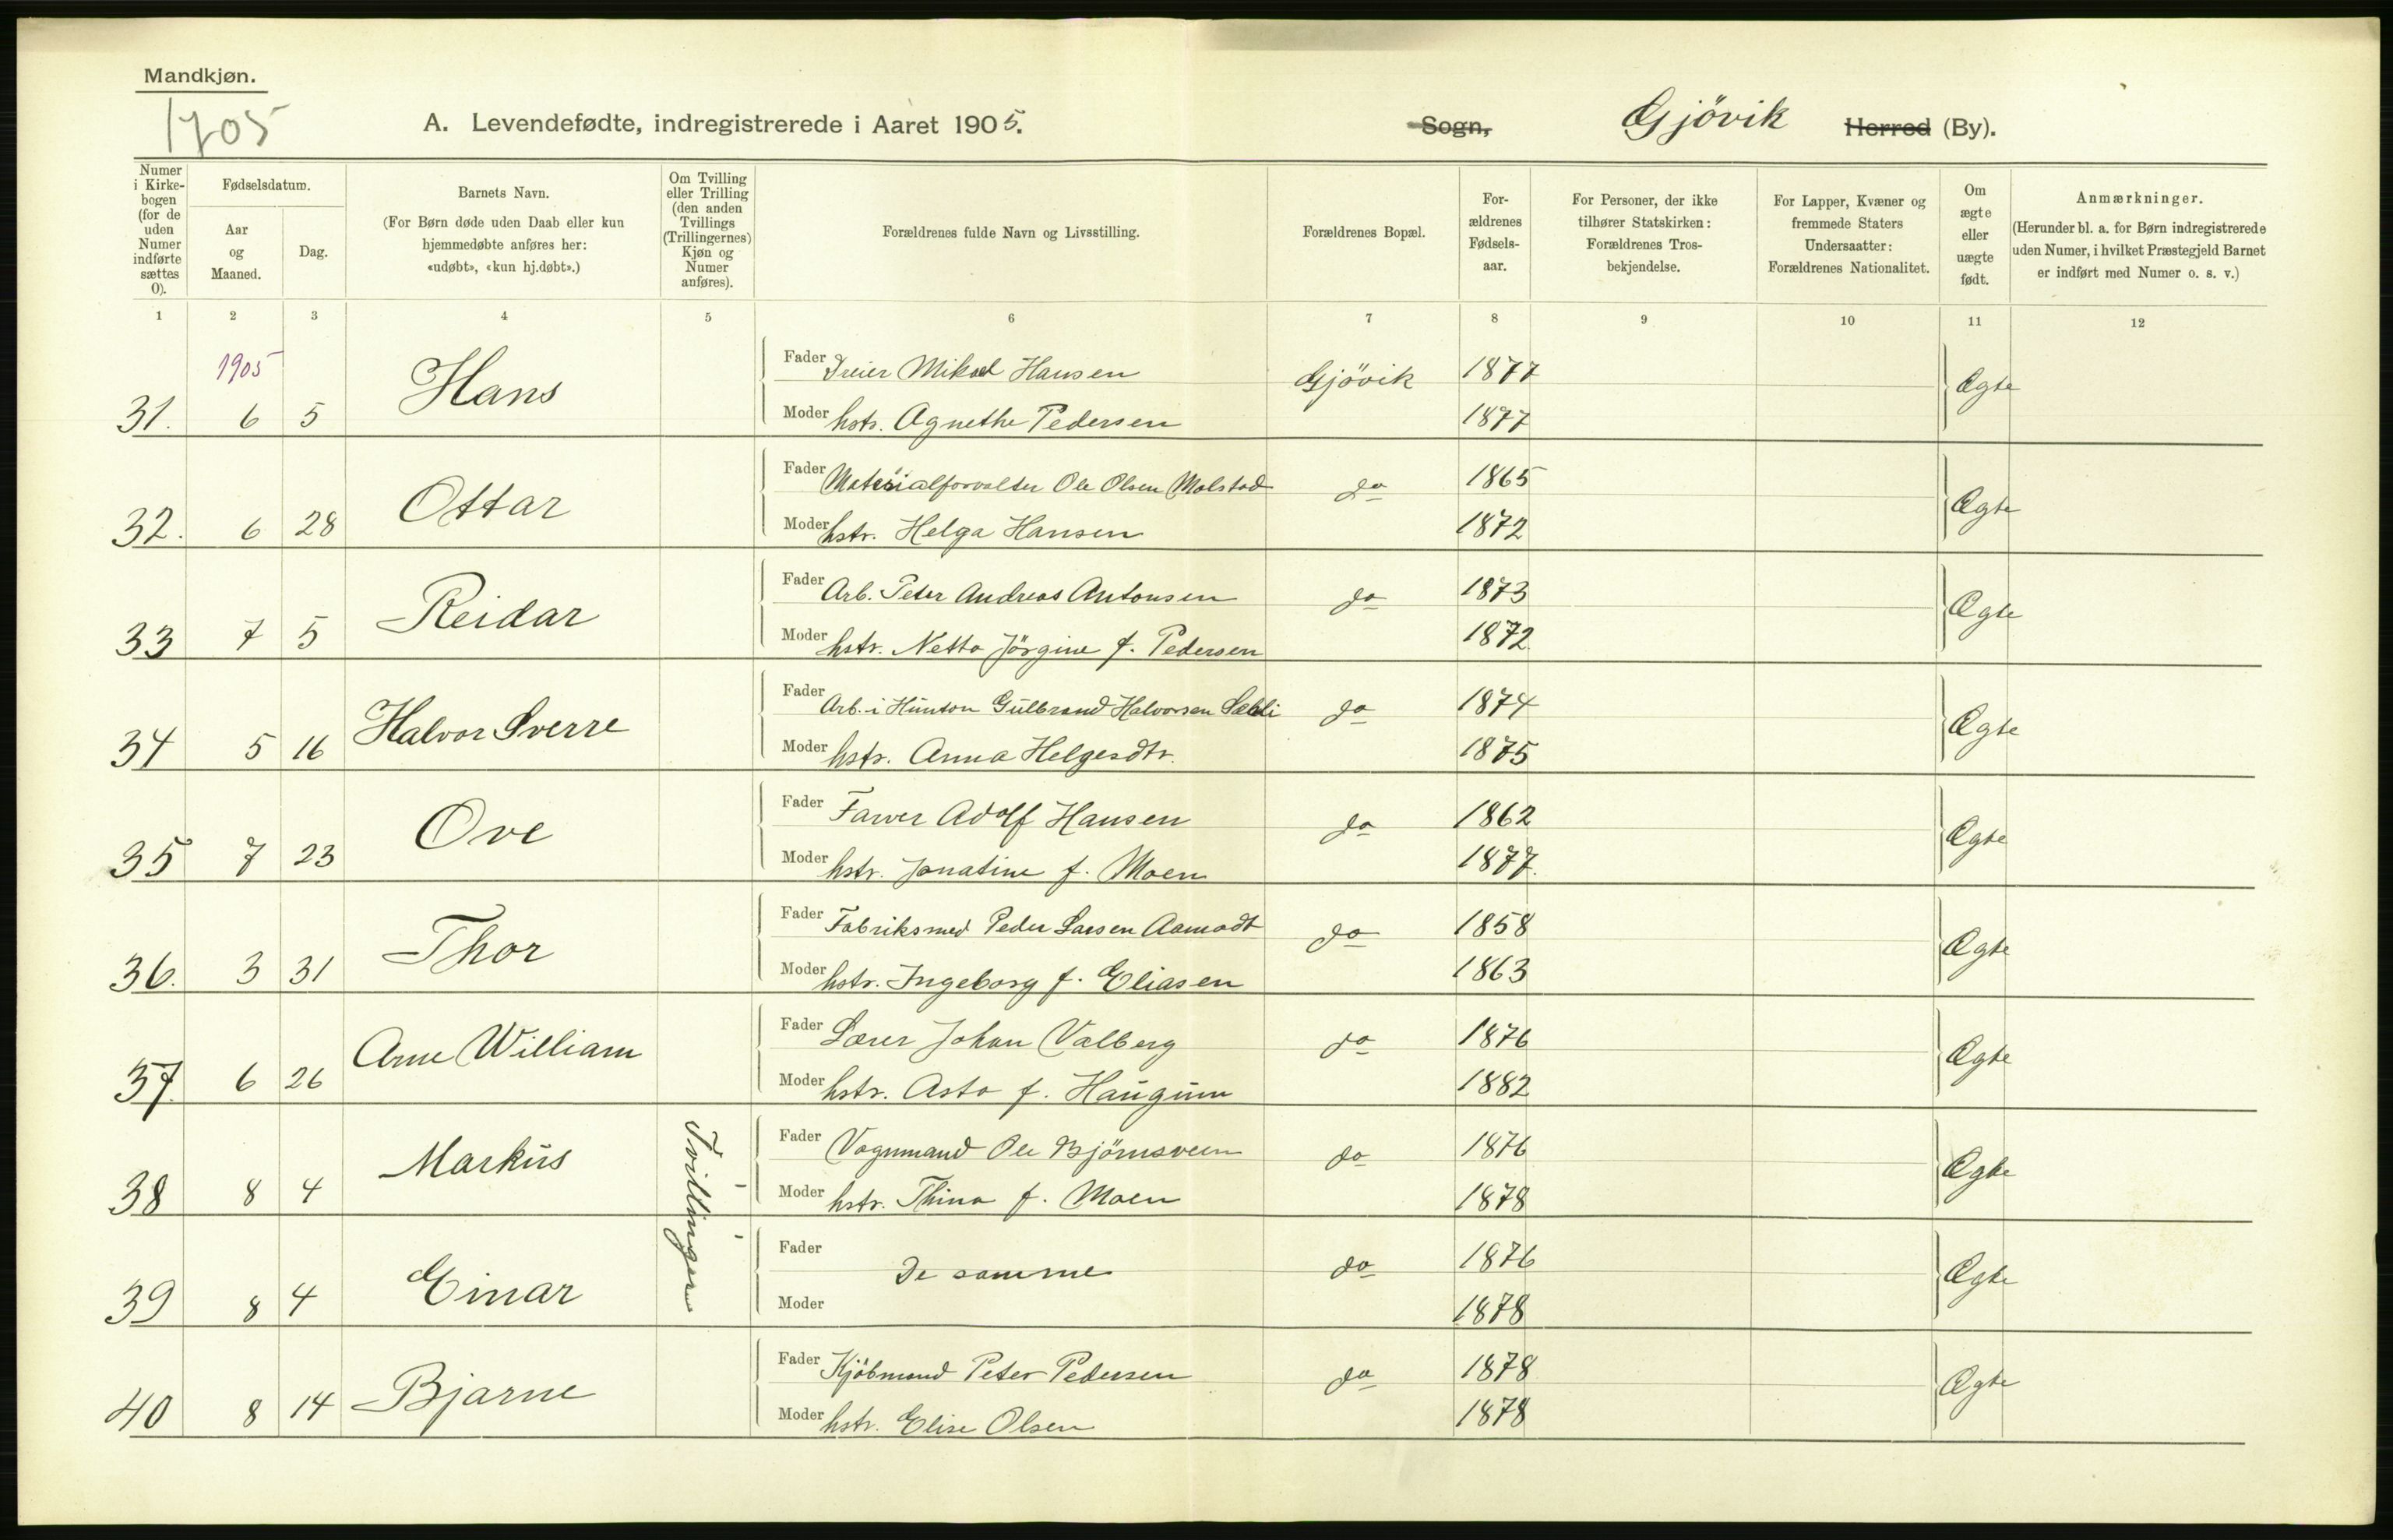 Mandkjøn.
1705
A. Levendefødte, indregistrerede i Aaret 1905.
Sogn, Gjövik Herred (By).
Numer i Kirke-bogen (for de uden Numer indførte sættes 0).
Fødselsdatum.
Aar og Maaned.
Dag.
Barnets Navn.
(For Børn døde uden Daab eller kun hjemmedøbte anføres her: «udøbt», «kun hj.døbt».)
Om Tvilling eller Trilling (den anden Tvillings (Trillingernes) Kjøn og Numer anføres).
Forældrenes fulde Navn og Livsstilling.
Forældrenes Bopæl.
For-ældrenes Fødsels-aar.
For Personer, der ikke tilhører Statskirken: Forældrenes Tros-bekjendelse.
For Lapper, Kvæner og fremmede Staters Undersaatter: Forældrenes Nationalitet.
Om ægte eller uægte født.
Anmærkninger.
(Herunder bl. a. for Børn indregistrerede uden Numer, i hvilket Præstegjeld Barnet er indført med Numer o. s. v.)
1 2 3 4 5 6 7 8 9 10 11 12
1905
Fader Dreier Mikael Hansen Gjövik 1877
31. 6 5 Hans Ægte
Moder hstr. Agnethe Pedersen 1877
Fader Materialforvalter Ole Olsen Molstad do 1865
32. 6 28 Ottar Ægte
Moder hstr. Helga Hansen 1872
Fader Arb. Peter Andreas Antonsen do 1873
33 7 5 Reidar Ægte
Moder hstr. Netta Jörgine f. Pedersen 1872
Fader Arb. i Hunton Gulbrand Halvorsen do 1874
34 5 16 Halvor Sverre Ægte
Moder hstr. Anna Helgesdtr. 1875
Fader Farver Adolf Hansen do 1862
35 7 23 Ove Ægte
Moder hstr. Jonatine f. Moen 1877.
Fader Fabriksmed Peder Larsen Aamodt do 1858
36. 3 31 Thor Ægte
Moder hstr. Ingeborg f. Eliasen 1863
Fader Lærer Johan Valberg do 1876
37. 6 26 Arne William Ægte
Moder hstr. Asta f. Haugum 1882
Fader Vognmand Ole Björnsveen do 1876
38 8 4 Markus Tvillinger Ægte
Moder hstr. Thina f. Moen 1878
Fader De samme do 1876
39 8 4 Einar Ægte
Moder 1878
Fader Kjöbmand Peter Pedersen do 1878
40 8 14 Bjarne Ægte
Moder hstr. Elise Olsen 1878